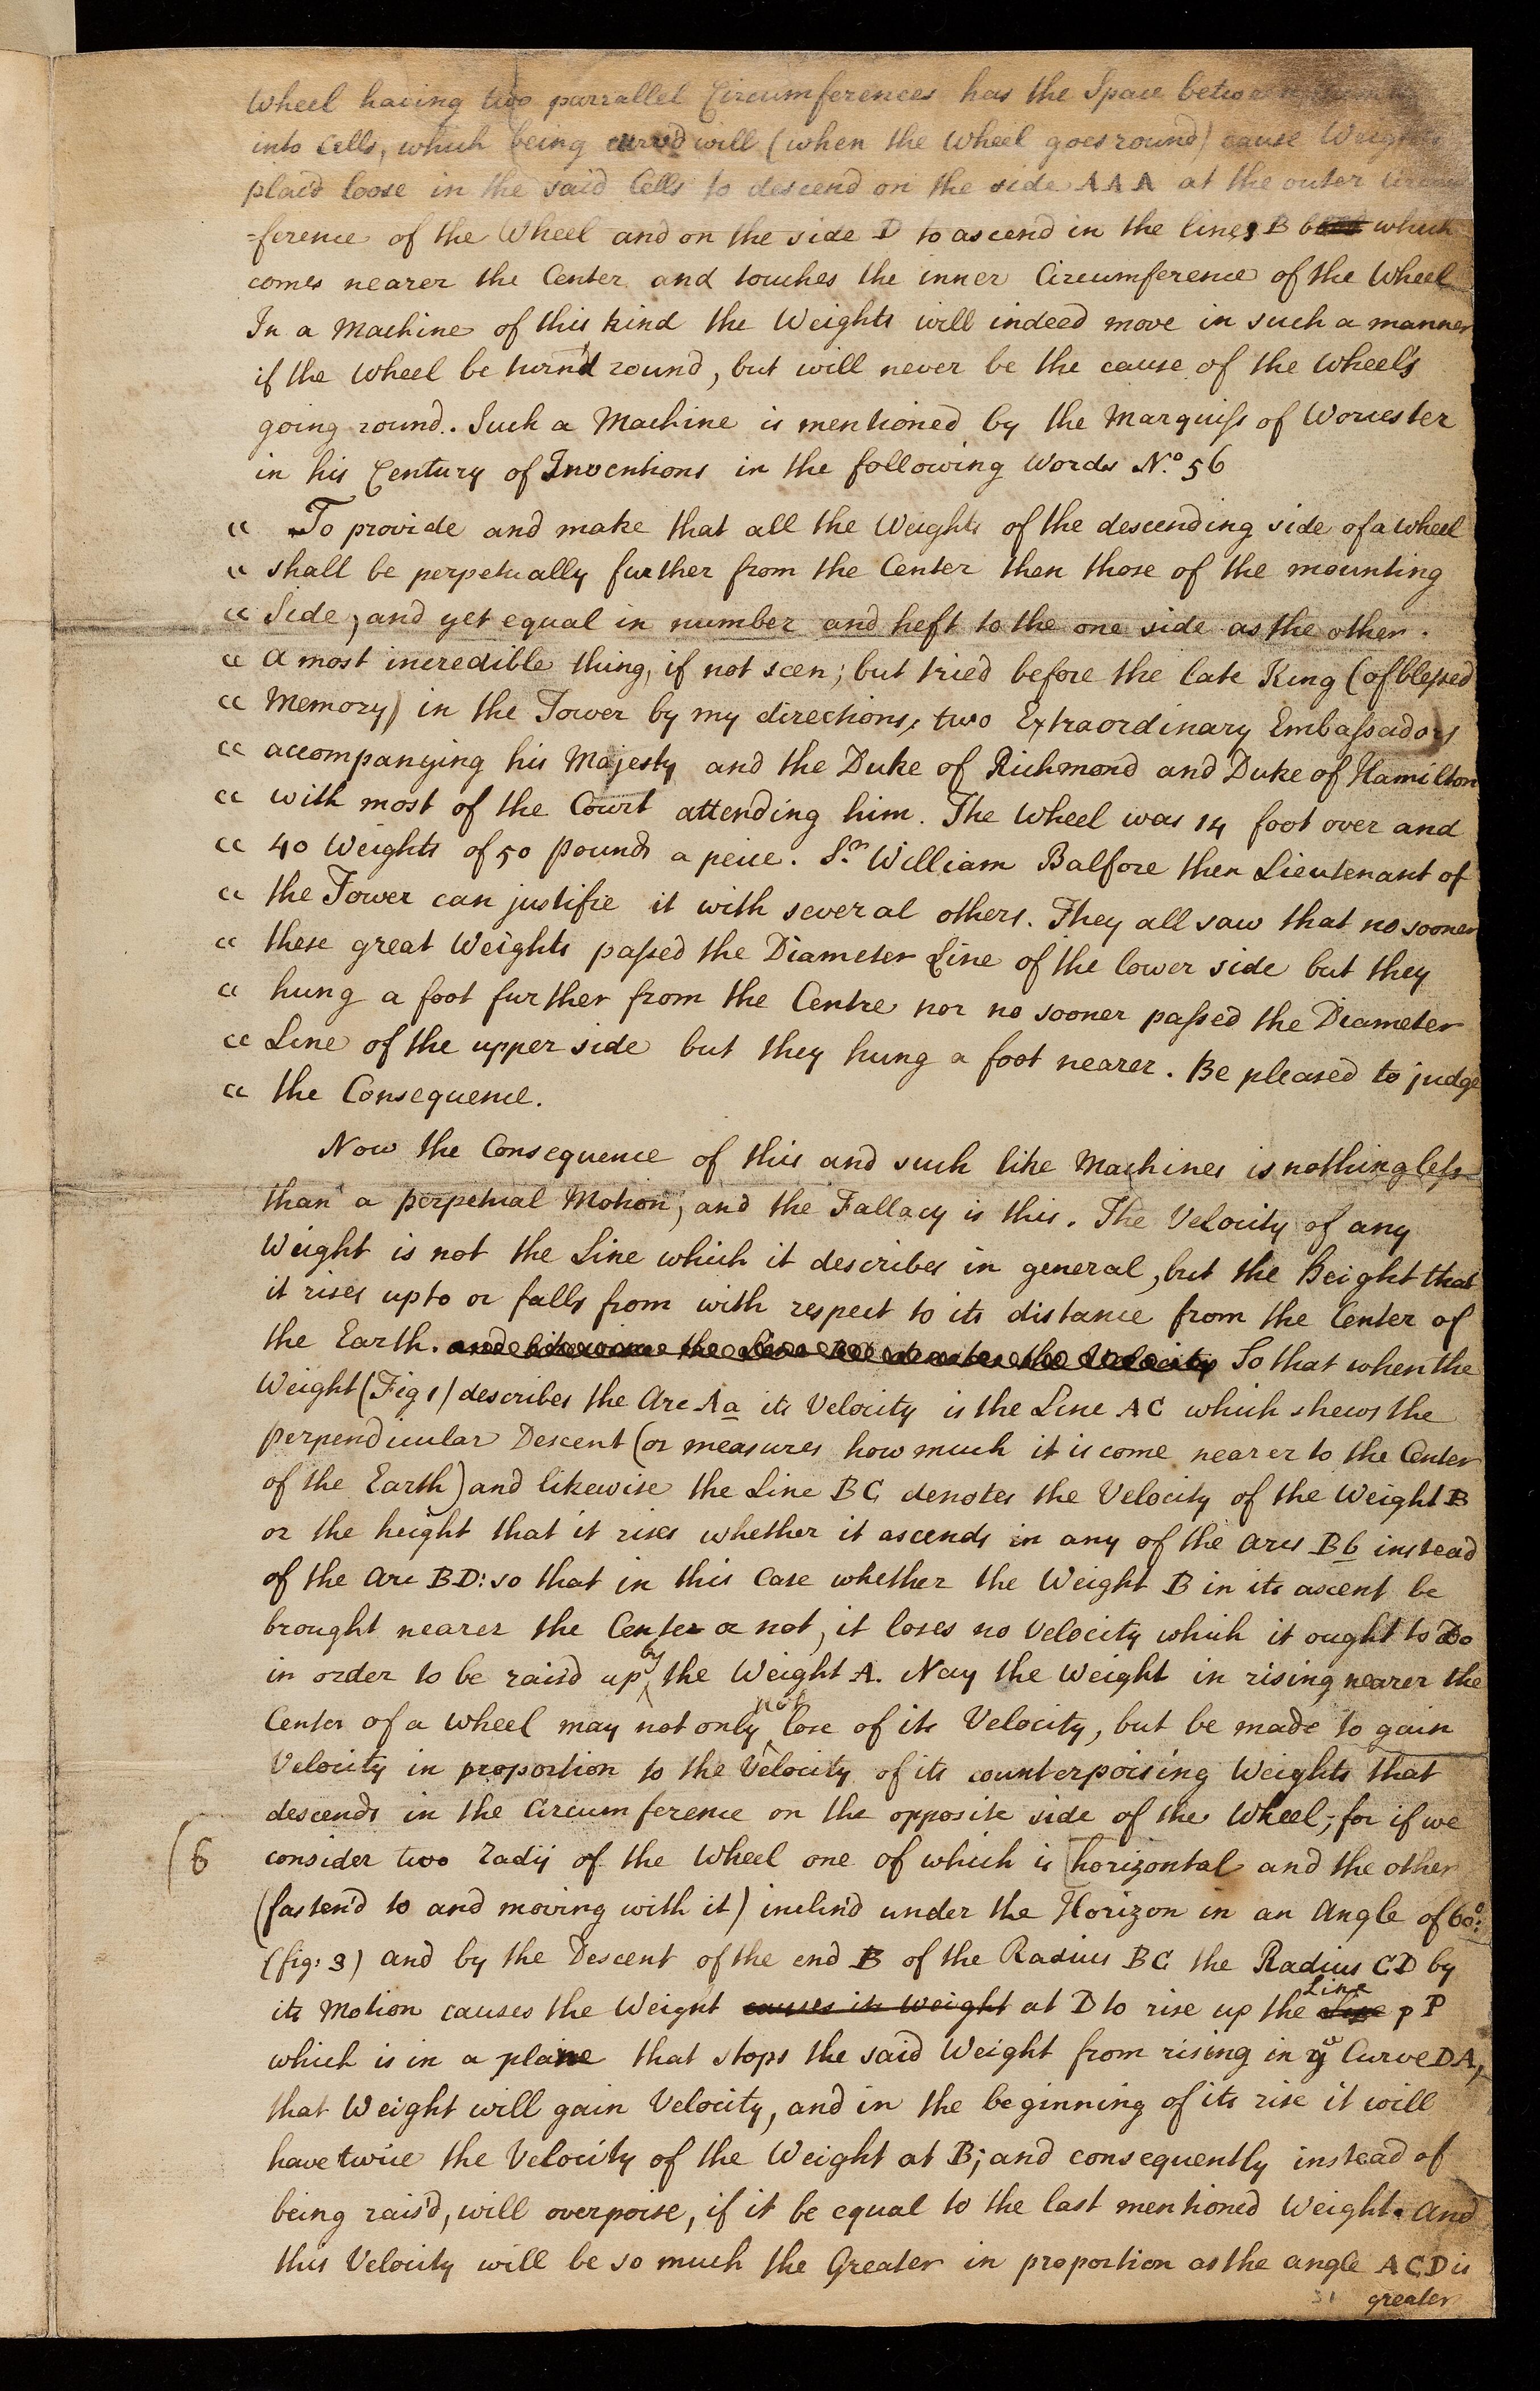 Wheel having two parrallel Circumferences has the Space
into Cells, which being curv'd will (when the Wheel goes round) cause Weights
plac'd loose in the said Cells to descend on the side AAA at the outer Circum
=ference of the Wheel and on the side D to ascend in the lines B b which
comes nearer the Center and touches the inner Circumference of the Wheel
In a Machine of this kind the Weights will indeed move in such a manner
if the Wheel be turn'd round, but will never be the cause of the Wheel's
going round. Such a Machine is mentioned by the Marquiſs of Worcester
in his Century of Inventions in the following Words N.o 56
“ To provide and make that all the Weights of the descending side of a wheel
“ shall be perpetually further from the Center then those of the mounting
“ Side, and yet equal in number and heft to the one side as the other.
“ A most incredible thing, if not seen; but tried before the late King (of bleſsed
“ Memory) in the Tower by my directions, two Extraordinary Embaſsadors
“ accompanying his Majesty and the Duke of Richmond and Duke of Hamilton
“ with most of the Court attending him. The Wheel was 14 foot over and
“ 40 Weights of 50 pounds a peice. S.r William Balfore then Lieutenant of
“ the Tower can justifie it with several others. They all saw that no sooner
“ these great Weights paſsed the Diameter Line of the lower side but they
“ hung a foot further from the Centre nor no sooner paſsed the Diameter
“ Line of the upper side but they hung a foot nearer. Be pleased to judge
“ the Consequence.
Now the Consequence of this and such like Machines is nothing leſs
than a perpetual Motion; and the Fallacy is this. The Velocity of any
Weight is not the Line which it describes in general, but the height that
it rises up to or falls from with respect to its distance from the Center of
the Earth. and likewise the Line denotes the Velocity So that when the
Weight (Fig 1) describes the Arc Aa its Velocity is the Line AC which shews the
perpendicular Descent (or measures how much it is come nearer to the Center
of the Earth) and likewise the Line BC denotes the Velocity of the Weight B
or the height that it rises whether it ascends in any of the Arcs Bb instead
of the Arc BD: so that in this Case whether the Weight B in its ascent be
brought nearer the Center or not, it loses no Velocity which it ought to Do
in order to be rais'd up by the Weight A. Nay the Weight in rising nearer the
Center of a Wheel may not only not lose of its Velocity, but be made to gain
Velocity in proportion to the Velocity of its counterpoising Weights that
descends in the Circumference on the opposite side of the Wheel; for if we
(6 consider two Radij of the Wheel one of which is [horizontal and the other
(fasten'd to and moving with it) inclin'd under the Horizon in an Angle of 60°:
(fig: 3) and by the Descent of the end B of the Radius BC the Radius CD by
its Motion causes the Weight causes its Weight at D to rise up the Line p P
which is in a plane that stops the said Weight from rising in ye Curve DA,
that Weight will gain Velocity, and in the beginning of its rise it will
have twice the Velocity of the Weight at B; and consequently instead of
being rais'd, will overpoise, if it be equal to the last mentioned Weight. And
this Velocity will be so much the Greater in proportion as the angle ACD is
31 greater